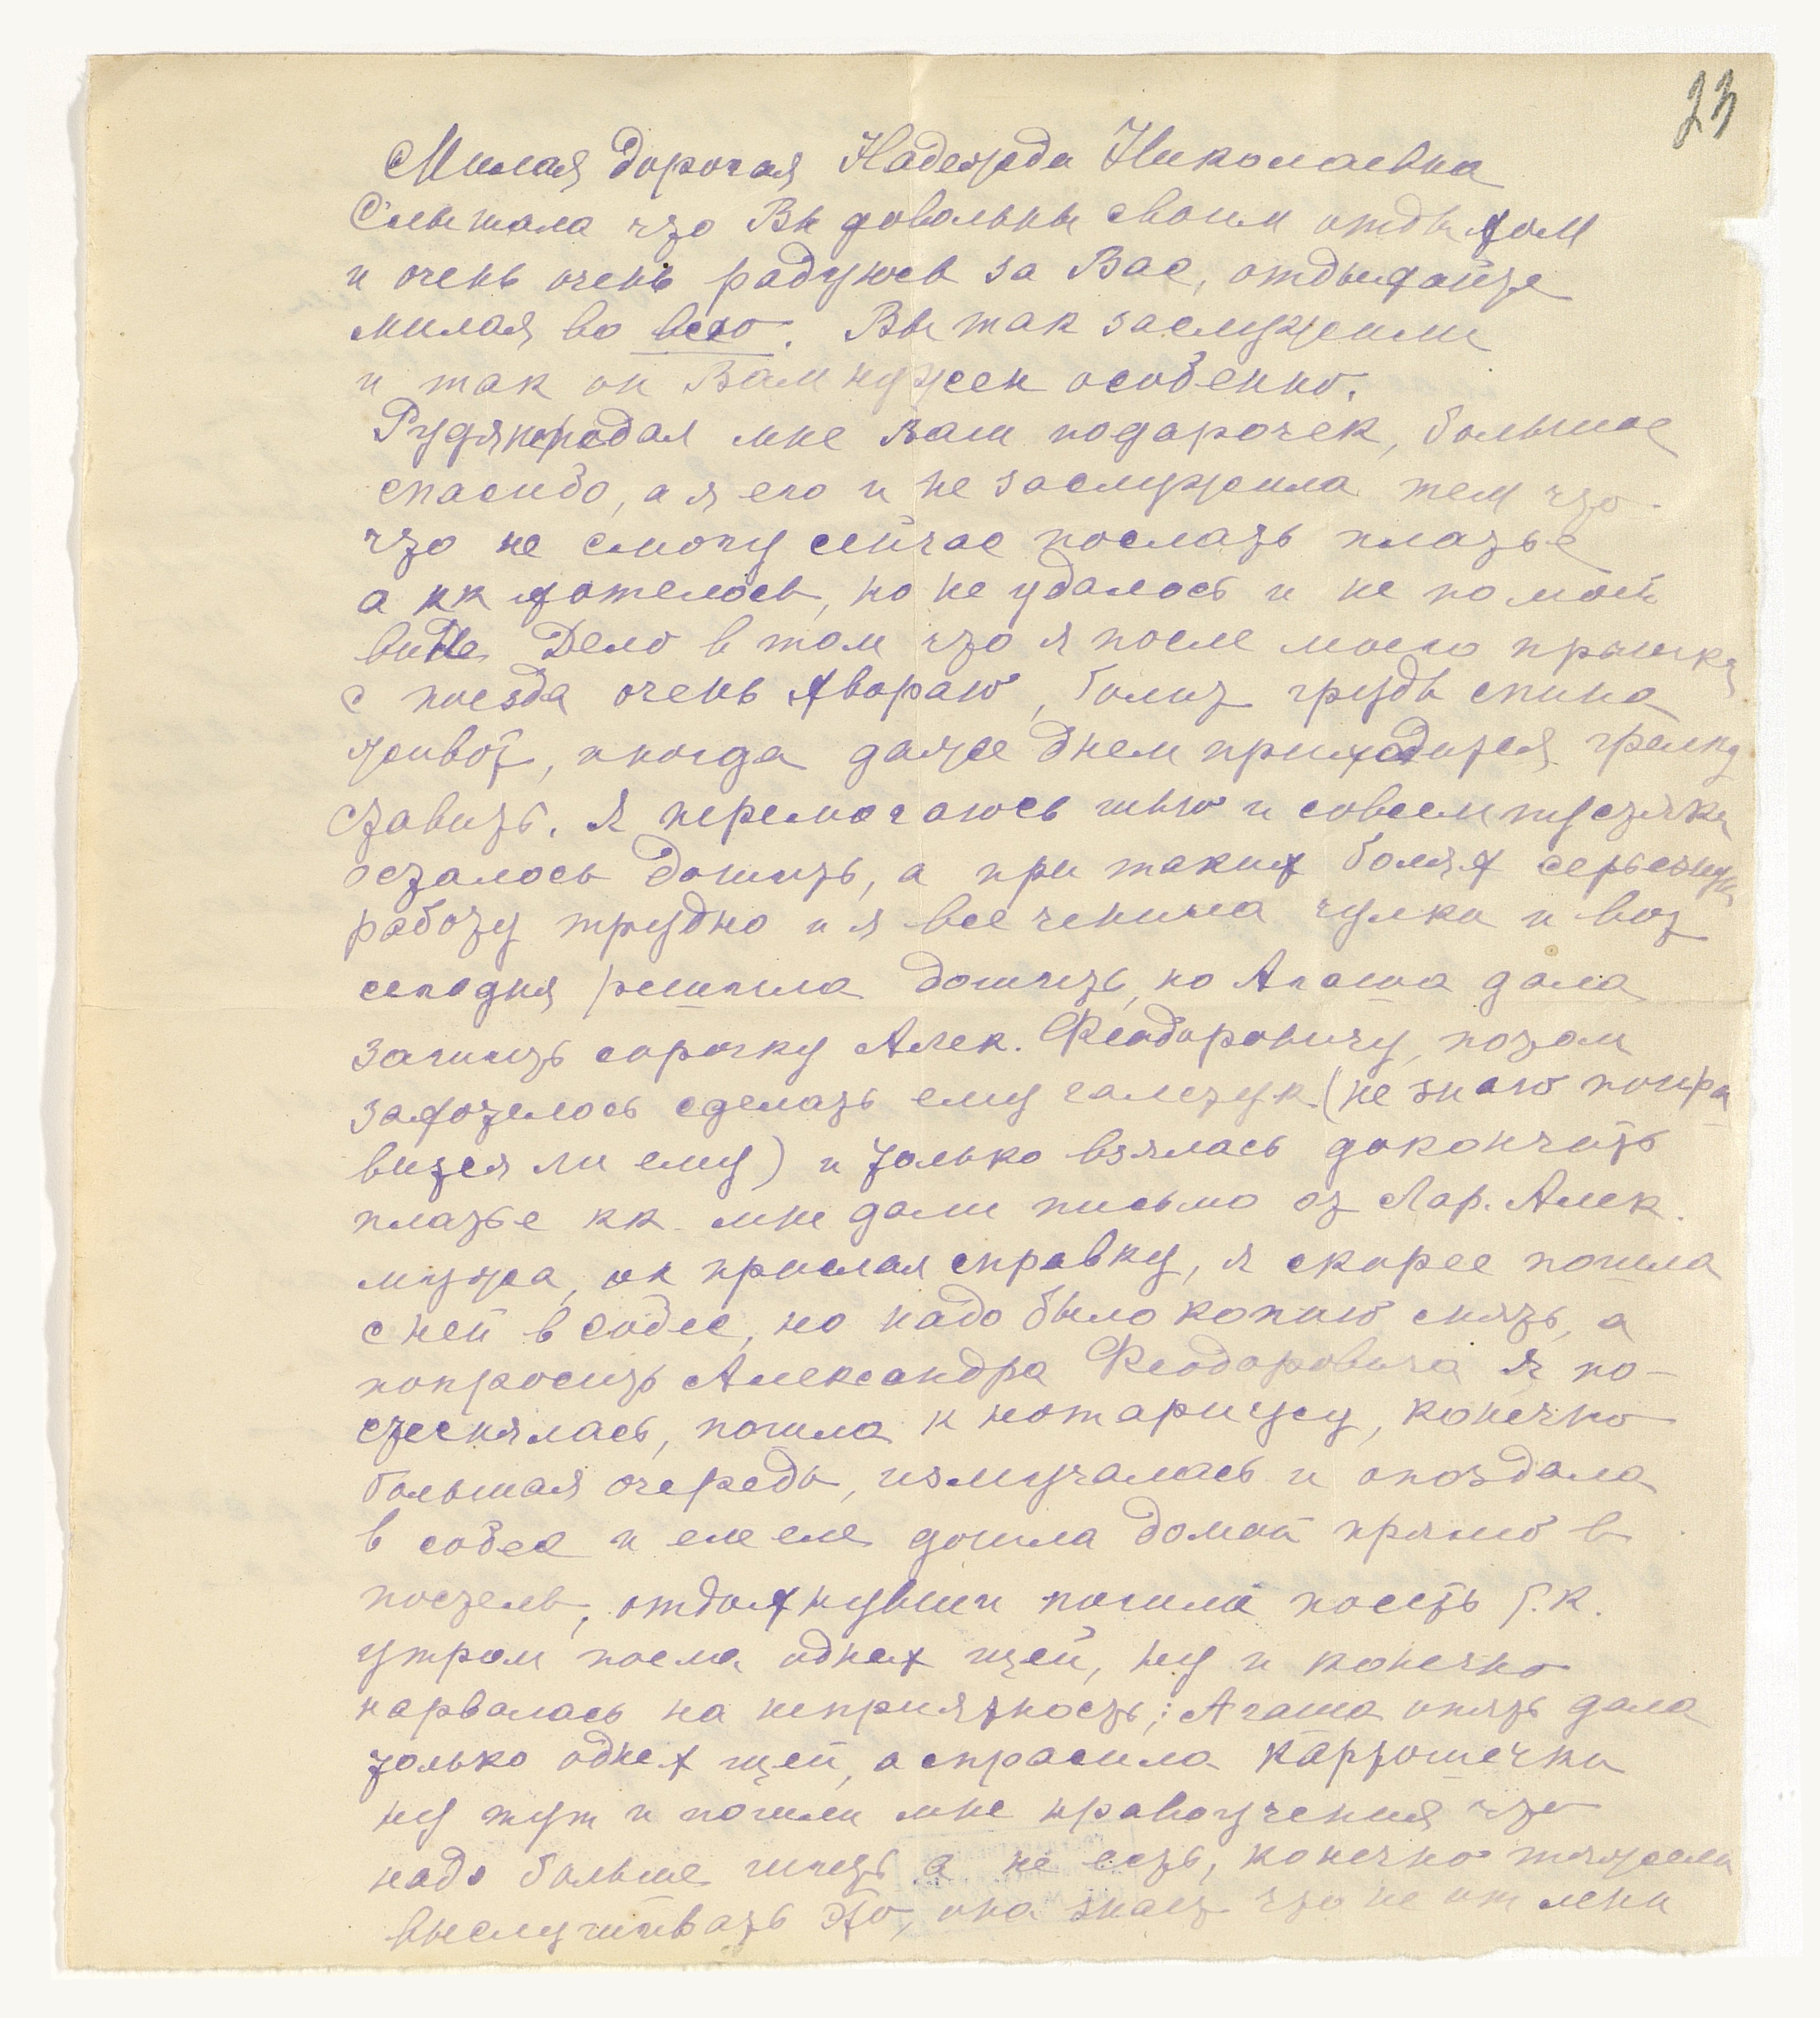 23
Милая дорогая Надежда Николаевна
Слышала что Вы довольны своим отдыхом
и очень очень радуюсь за Вас, отдыхайте
милая во всю. Вы так заслужили
и так он Вам нужен особенно.
Рудя передал мне Ваш подарочек, большое
спасибо, а я его и не заслужила тем что
что не смогу сейчас послать платье
а кк хотелось, но не удалось и не по моей
вине Дело в том что я после моего прыжка
с поезда очень хвораю, болит грудь спина
живот, иногда даже днем приходится грелку
ставить. Я перемогаюсь шью и совсем пустяки
осталось дошить, а при таких болях серьезную
работу трудно и я все чинила чулки и вот
сегодня решила дошить, но Агаша дала
зашить сорочку Алек. Феодоровичу, потом
захотелось сделать ему галстук (не знаю понра
вится ли ему) и только взялась докончить
платье кк мне дали письмо от Лар. Алек.
мужа, он прислал справку, я скорее пошла
с ней в собес, но надо было копию снять, а
попросить Александра Феодоровича я по-
стеснялась, пошла к нотариусу, конечно
большая очередь, измучалась и опоздала
в собес и еле еле дошла домой прямо в
постель, отдохнувши пошла поесть т.к.
утром поела одних щей, ну и конечно
нарвалась на неприятность; Агаша опять дала
только одних щей, а спросила картошечки
ну тут и пошли мне нравоучения что
надо больше шить а не есть, конечно тяжело
выслушивать это, она знает что не от лени